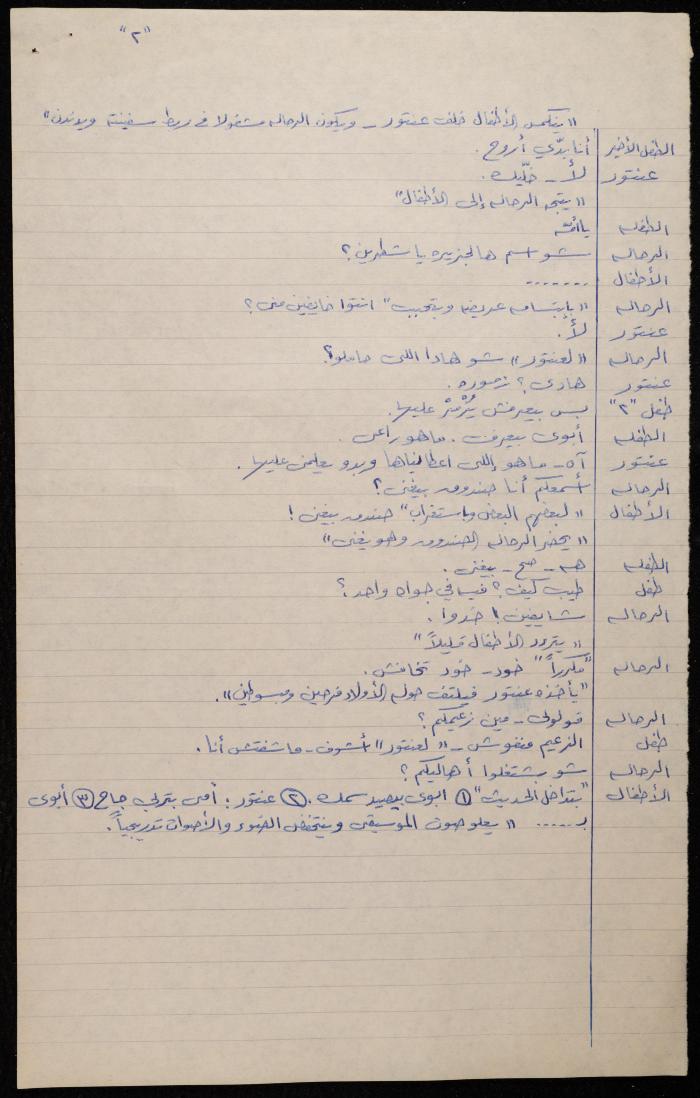 "٢"
"ينكمش الأطفال خلف عنتور - ويكون الرحاله مشغولا في ربط سفينته ويدندن"
الطفل الأخير أنا بدّي أروح.
عنتور لأ - خلّيك.
"يتجه الرحاله إلى الأطفال"
الطفله يا أمّه
الرحاله شو اسم هالجزيره يا شطرين؟
الأطفال .......
الرحاله "بإبتسامه عريضه وبتحبب" انتوا خايفين مني؟
عنتور لأ.
الرحاله "لعنتور" شو هادا اللي حاملو؟
عنتور هادي؟ زموره.
طفل "٢" بس بيعرفش يزمّر عليها.
الطفله أبوي بيعرف. ما هو راعي.
عنتور آه - ما هو إللي اعطانياها وبدو يعلمني عليها.
الرحاله أسمعكم أنا صندوق بيغني؟
الأطفال "لبعضهم البعض وباستغراب" صندوق بيغني!
"يحضر الرحاله الصندوق وهو يغني"
الطفله هه - صح - بيغني.
طفل طيب كيف؟ فيه في جواه واحد؟
الرحاله شايفين! خدوا.
"يتردد الأطفال قليلاً"
الرحاله "مكرراً" خود - خود تخافش.
"يأخذه عنتور فيلتف حوله الأولاد فرحين ومبسوطين".
الرحاله قولولي - مين زعيمكم؟
طفل الزعيم منفوش - "لعنتور" أشوف - ما شفتش أنا.
الرحاله شو بشتغلوا أهاليكم؟
الأطفال "بتداخل الحديث" ① ابوي بيصيد سمك. ② عنتور: أمي بتربي جاج ③ أبوي
بـ...... "يعلو صوت الموسيقى وينخفض الضوء والأصوات تدريجياً.